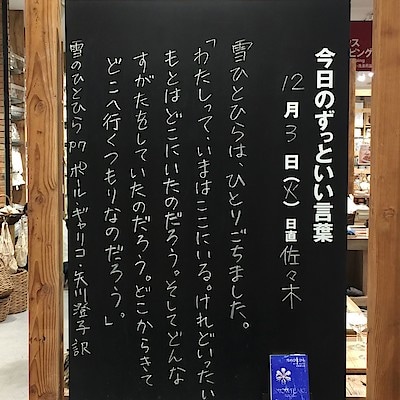 今日のずっといい言葉
12月3日(火)日直 佐々木
雪ひとひらは、ひとりごちました。
「わたしって、いまはここにいる。けれどいったい
もとはどこにいたのだろう。そしてどんな
すがたをしていたのだろう。どこからきて
どこへ行くつもりなのだろう。」
雪のひとひら P7 ポール・ギャリコ・矢川澄子 訳